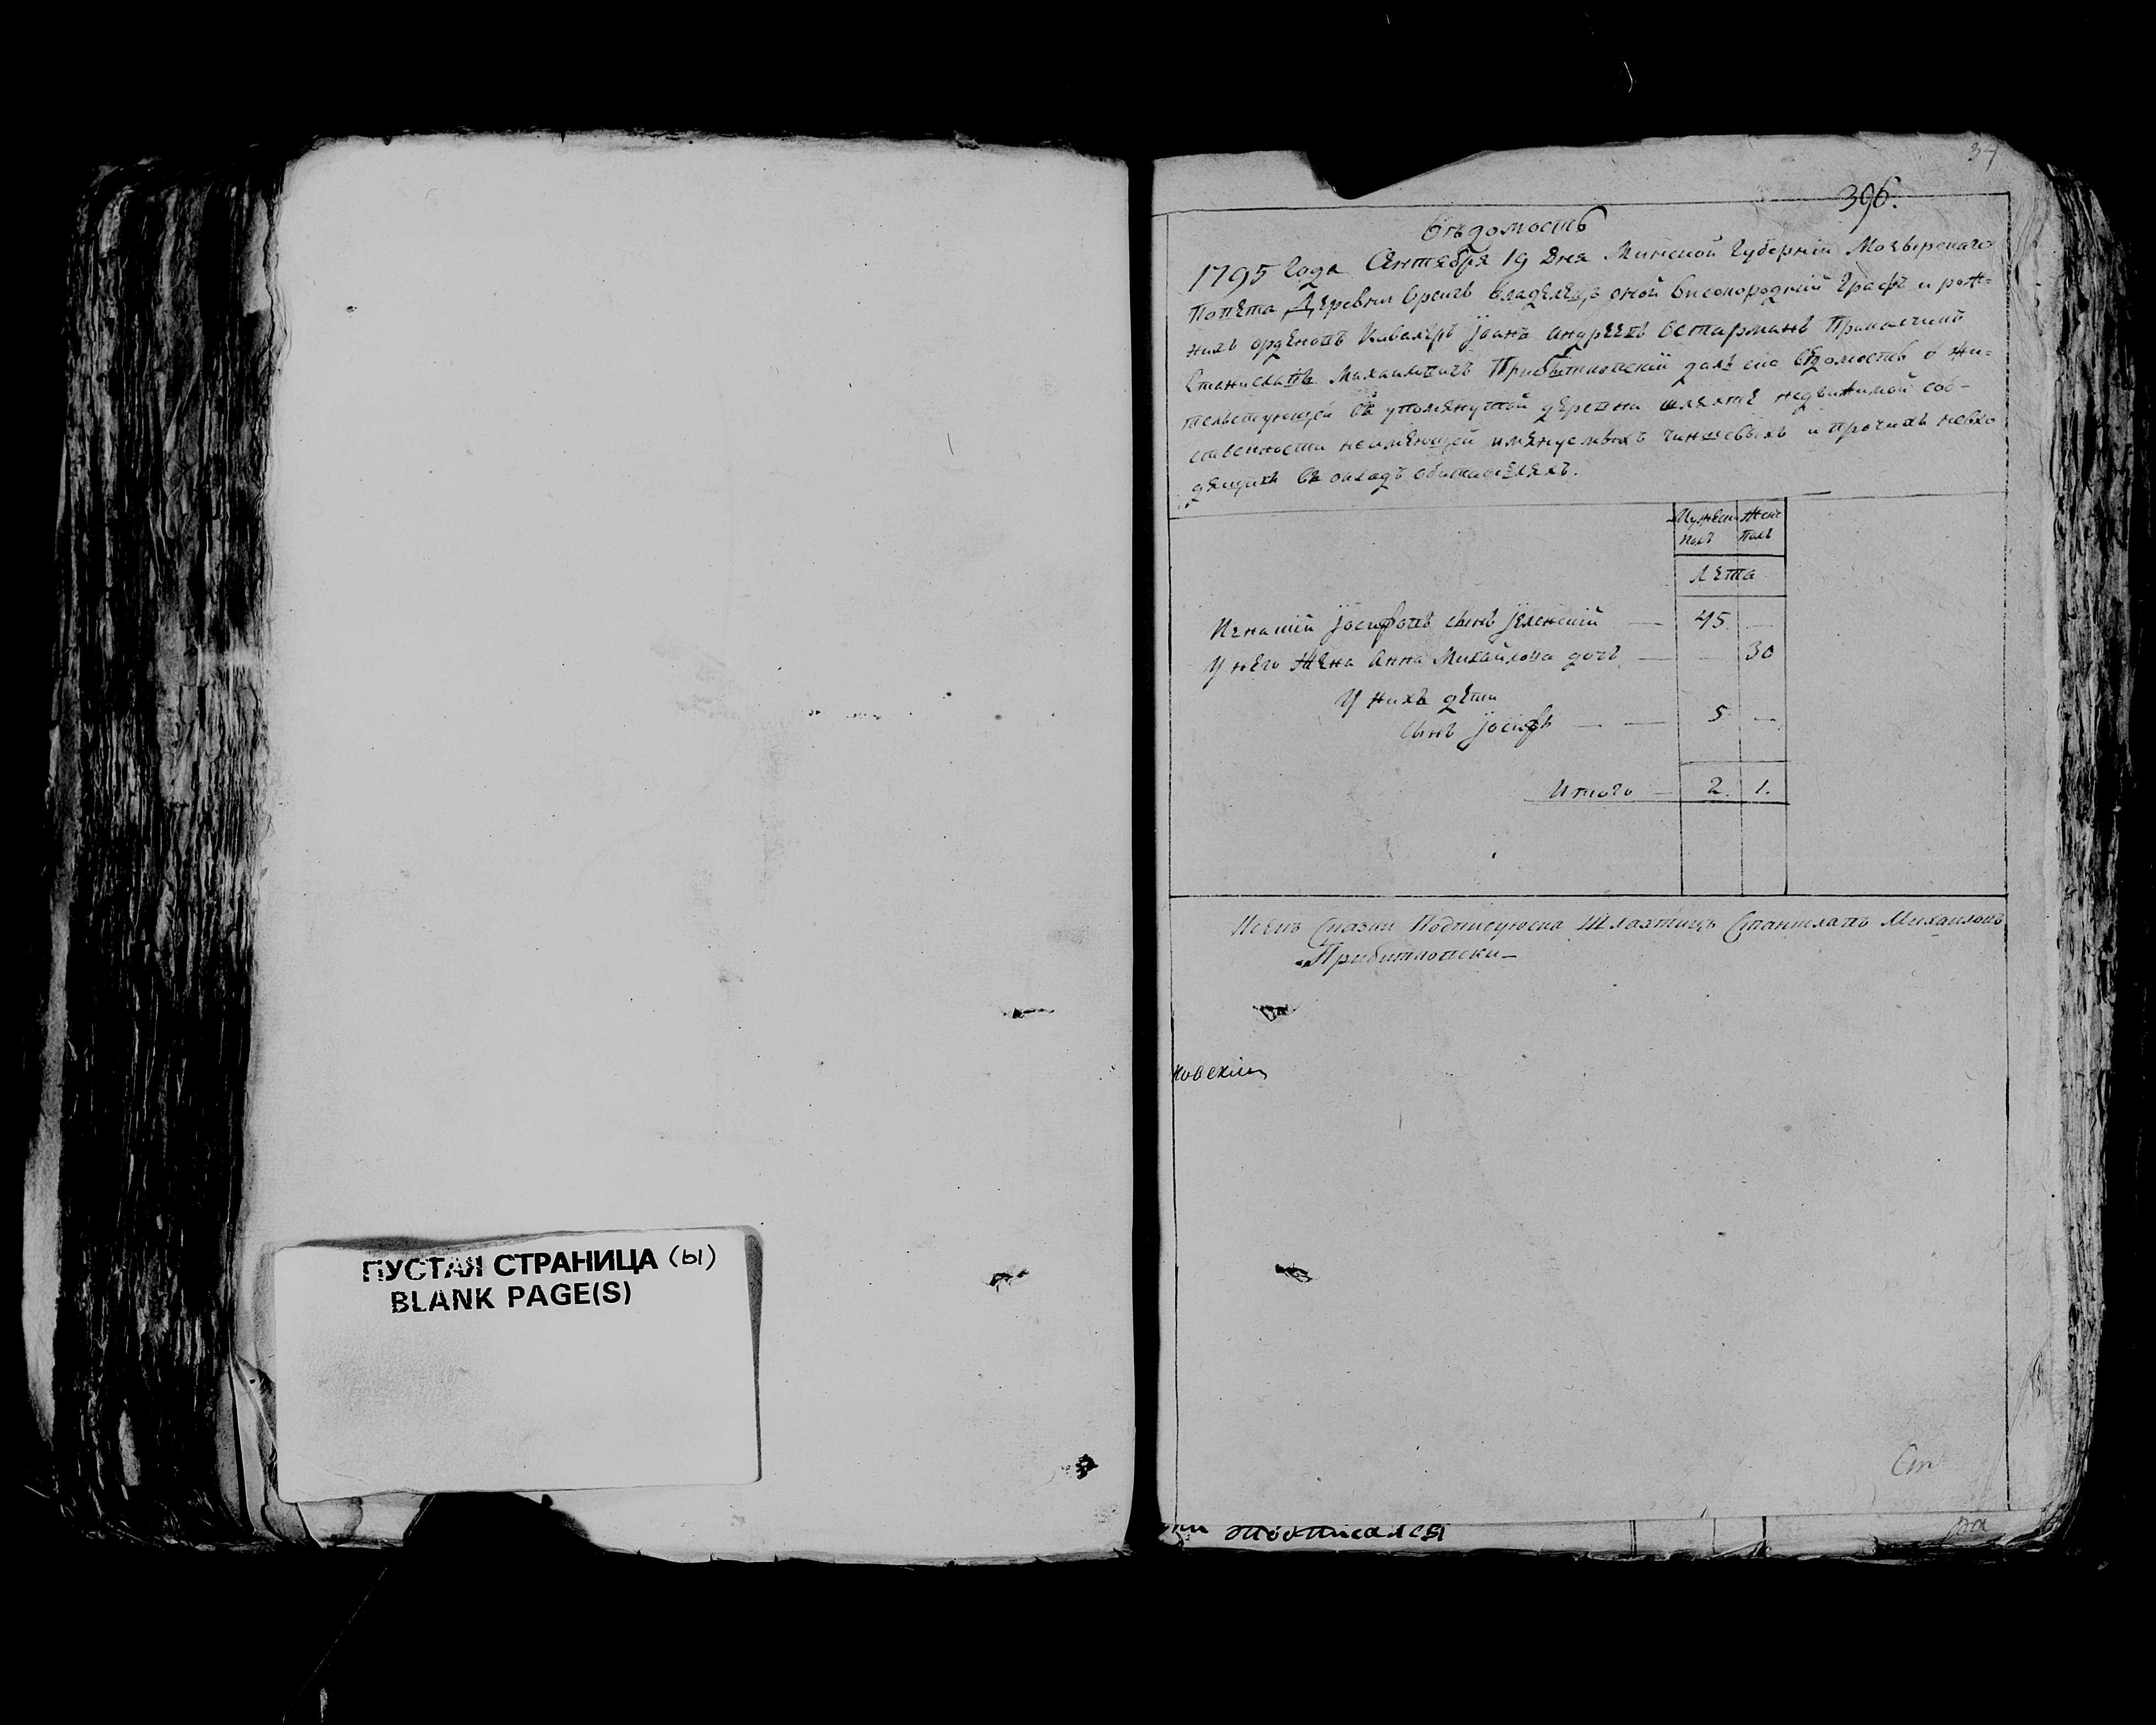 ПУСТАЯ СТРАНИЦА (ы)
BLANK PAGE(S)
34
396.
Вѣдомость
1795 Года Сентября 19 Дня Минской Губерніи Мозырскаго
Повѣта Деревни владелецъ оной Высокородній Графъ и
ордѣновъ Кавалеръ Іоанъ Андрѣевъ Остѣрманъ
Станиславъ Михаиловичъ далъ сію вѣдомость о жи-
тельствующей въ упомянутой деревни шляхте недвижимой соб-
ственности неимѣющей имянуемыхъ чиншевыхъ и прочихъ невхо
дящихъ въ окладъ обитателяхъ.
Мужеск Женс
Полъ Полъ
Лета
Игнатій Іосифовъ сынъ Іеленскій — 45 —
У него Жена Анна Михайлова дочь — — 30
У нихъ дети
сынъ Іосифъ — — 5 —
Итого — 2. 1.
Подписуюсна Шляхтицъ Станиславъ Михаиловъ
новским
подписался
Ст
ра